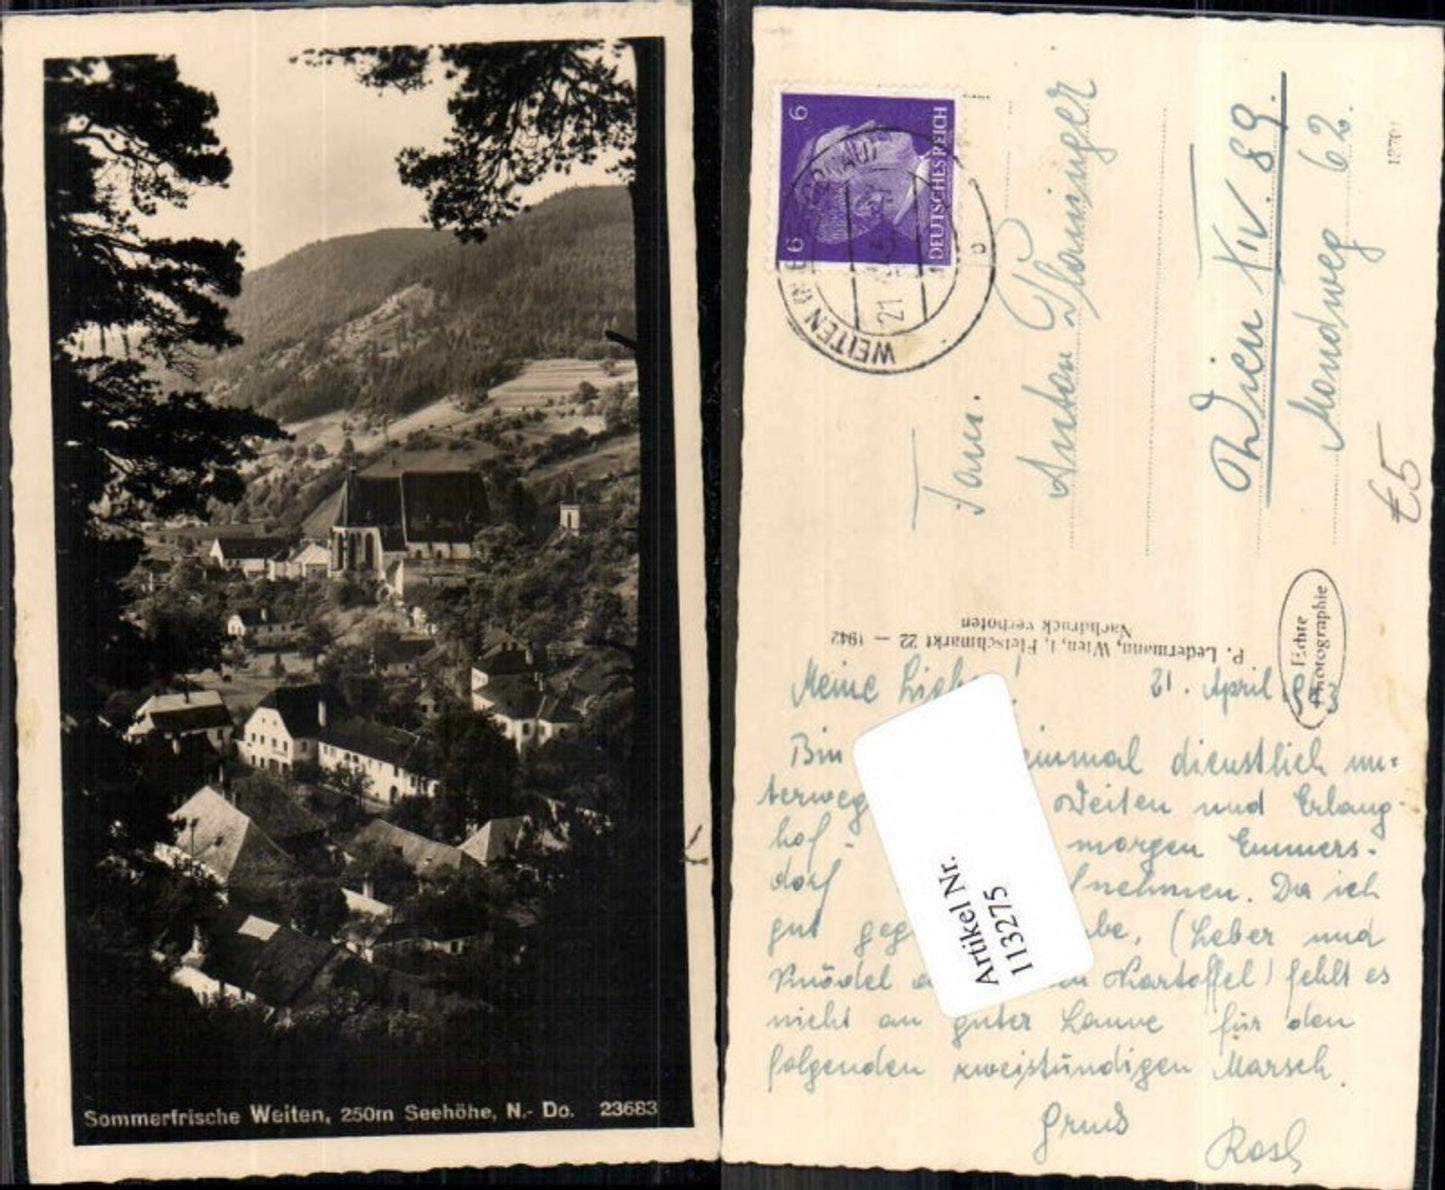 Sommerfrische Weiten, 250m Seehöhe, N.- Do. 23683
6
6
DEUTSCHES REICH
WEITEN
21
b
Fam.
Anton
Wien XIV. 89.
62.
€5
18701
P. Ledermann, Wien, I, Fleischmarkt 22 — 1942
Nachdruck verboten
Echte
Photographie
Meine
21. April
Bin einmal dienstlich un=
terweg Weiten und Erlang-
hof. morgen Emmers-
dorf nehmen. Da ich
gut geg be, (Leber und
Knödel Kartoffel) fehlt es
nicht an guter Laune für den
folgenden zweistündigen Marsch.
Gruß
Rosl
Artikel Nr.
113275